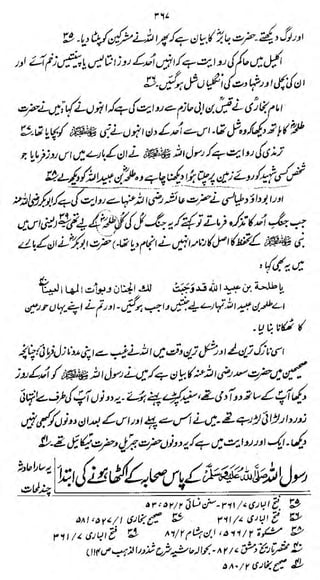 ۳۶۷
اور لوگ دیکھتے۔ حضرت جابرؓ کا بیان ہے کہ پھر اللہ نے مشرکین کو پلٹا دیا۔ ۳۵
اکلیل میں حاکم کی روایت ہے کہ انہیں اُحد کے روز انتالیس یا پینتیس زخم آئے اور
ان کی بچلی اور شہادت کی انگلیاں شل ہوگئیں۔ ۳۶
امام بخاریؒ نے قیسؒ بن ابی حازم سے روایت کی ہے کہ انہوں نے کہا، میں نے حضرت
طلحہؓ کا ہاتھ دیکھا کہ وہ شل تھا۔ اس سے اُحد کے دن انہوں نے نبی ﷺ کو بچایا تھا۔ ۳۷
ترمذی کی روایت ہے کہ رسول اللہ ﷺ نے ان کے بارے میں اس روز فرمایا جو
شخص کسی شہید کو روئے زمین پر چلتا ہوا دیکھنا چاہے وہ طلحہ بن عبید اللہ کو دیکھ لے۔ ۳۸
اور ابوداؤد طیالسی نے حضرت عائشہ رضی اللہ عنہا سے روایت کی ہے کہ ابوبکر رضی اللہ عنہ
جب جنگِ اُحد کا تذکرہ فرماتے تو کہتے کہ یہ جنگ کُل کی کُل طلحہؓ کے لیے تھی (یعنی اس میں
نبی ﷺ کے تحفظ کا اصل کارنامہ انہیں نے انجام دیا تھا۔) حضرت ابوبکرؓ نے ان کے بارے
میں یہ بھی کہا ہے
یا طلحة بن عبید اللہ قد وجبت لك الجنان وبوأت المها العینا
اے طلحہ بن عبید اللہ تمہارے لیے جنتیں واجب ہوگئیں۔ اور تم نے اپنے یہاں حورِ عین
کا ٹھکانا بنا لیا۔
اسی نازک ترین لمحے اور مشکل ترین وقت میں اللہ نے غیب سے اپنی مدد نازل فرمائی؛ چنانچہ
صحیحین میں حضرت سعد رضی اللہ عنہ کا بیان ہے کہ میں نے رسول اللہ ﷺ کو اُحد کے روز
دیکھا آپؐ کے ساتھ دو آدمی تھے، سفید کپڑے پہنے ہوئے۔ یہ دونوں آپؐ کی طرف سے انتہائی
زور دار لڑائی لڑ رہے تھے۔ میں نے اس سے پہلے اور اس کے بعد ان دونوں کو کبھی نہیں
دیکھا۔ ایک اور روایت میں ہے کہ یہ دونوں حضرت جبریلؑ و حضرت میکائیلؑ تھے۔
رسول اللہ ﷺ کے پاس صحابہ کے اکٹھا ہونے کی ابتدا
یہ سارا حادثہ
چند لمحات
۳۵ فتح الباری ۷/۳۶۱۔ سنن نسائی ۲/۵۲، ۵۳
۳۶ فتح الباری ۷/۳۶۱
۳۷ صحیح بخاری ۱/۵۲۷، ۵۸۱
۳۸ مشکوٰۃ ۲/۵۶۶، ابن ہشام ۲/۸۶
۳۹ فتح الباری ۷/۳۶۱
مختصر تاریخ دمشق ۷/۸۲۔ بحوالہ حاشیہ شرح شذور الذہب ص ۱۱۴
صحیح بخاری ۲/۵۸۰